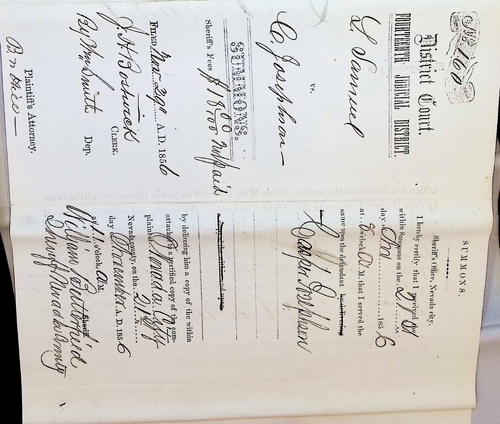 No. 160
District Court.
FOURTEENTH JUDICIAL DISTRICT.
L. Samuel
vs.
C. Josephson
SUMMONS.
Sheriff's Fees $18.00 Unpaid
Filed Nov. 29 A. D. 1856
J. H. Bostwick
CLERK.
By Wm Smith Dep.
Plaintiff's Attorney.
SUMMONS.
Sheriff's Office, Nevada city.
I hereby certify that I received
within Summons on the 21st
day 1856
at o'clock M. that I served the
same upon the defendant
Josephson
by delivering him a copy of the within
attached a certified copy of the com-
plaint Nevada City
Nevada county, on the 21
day November A. D. 1856
at o'clock M.
William Butterfield
Sheriff Nevada County